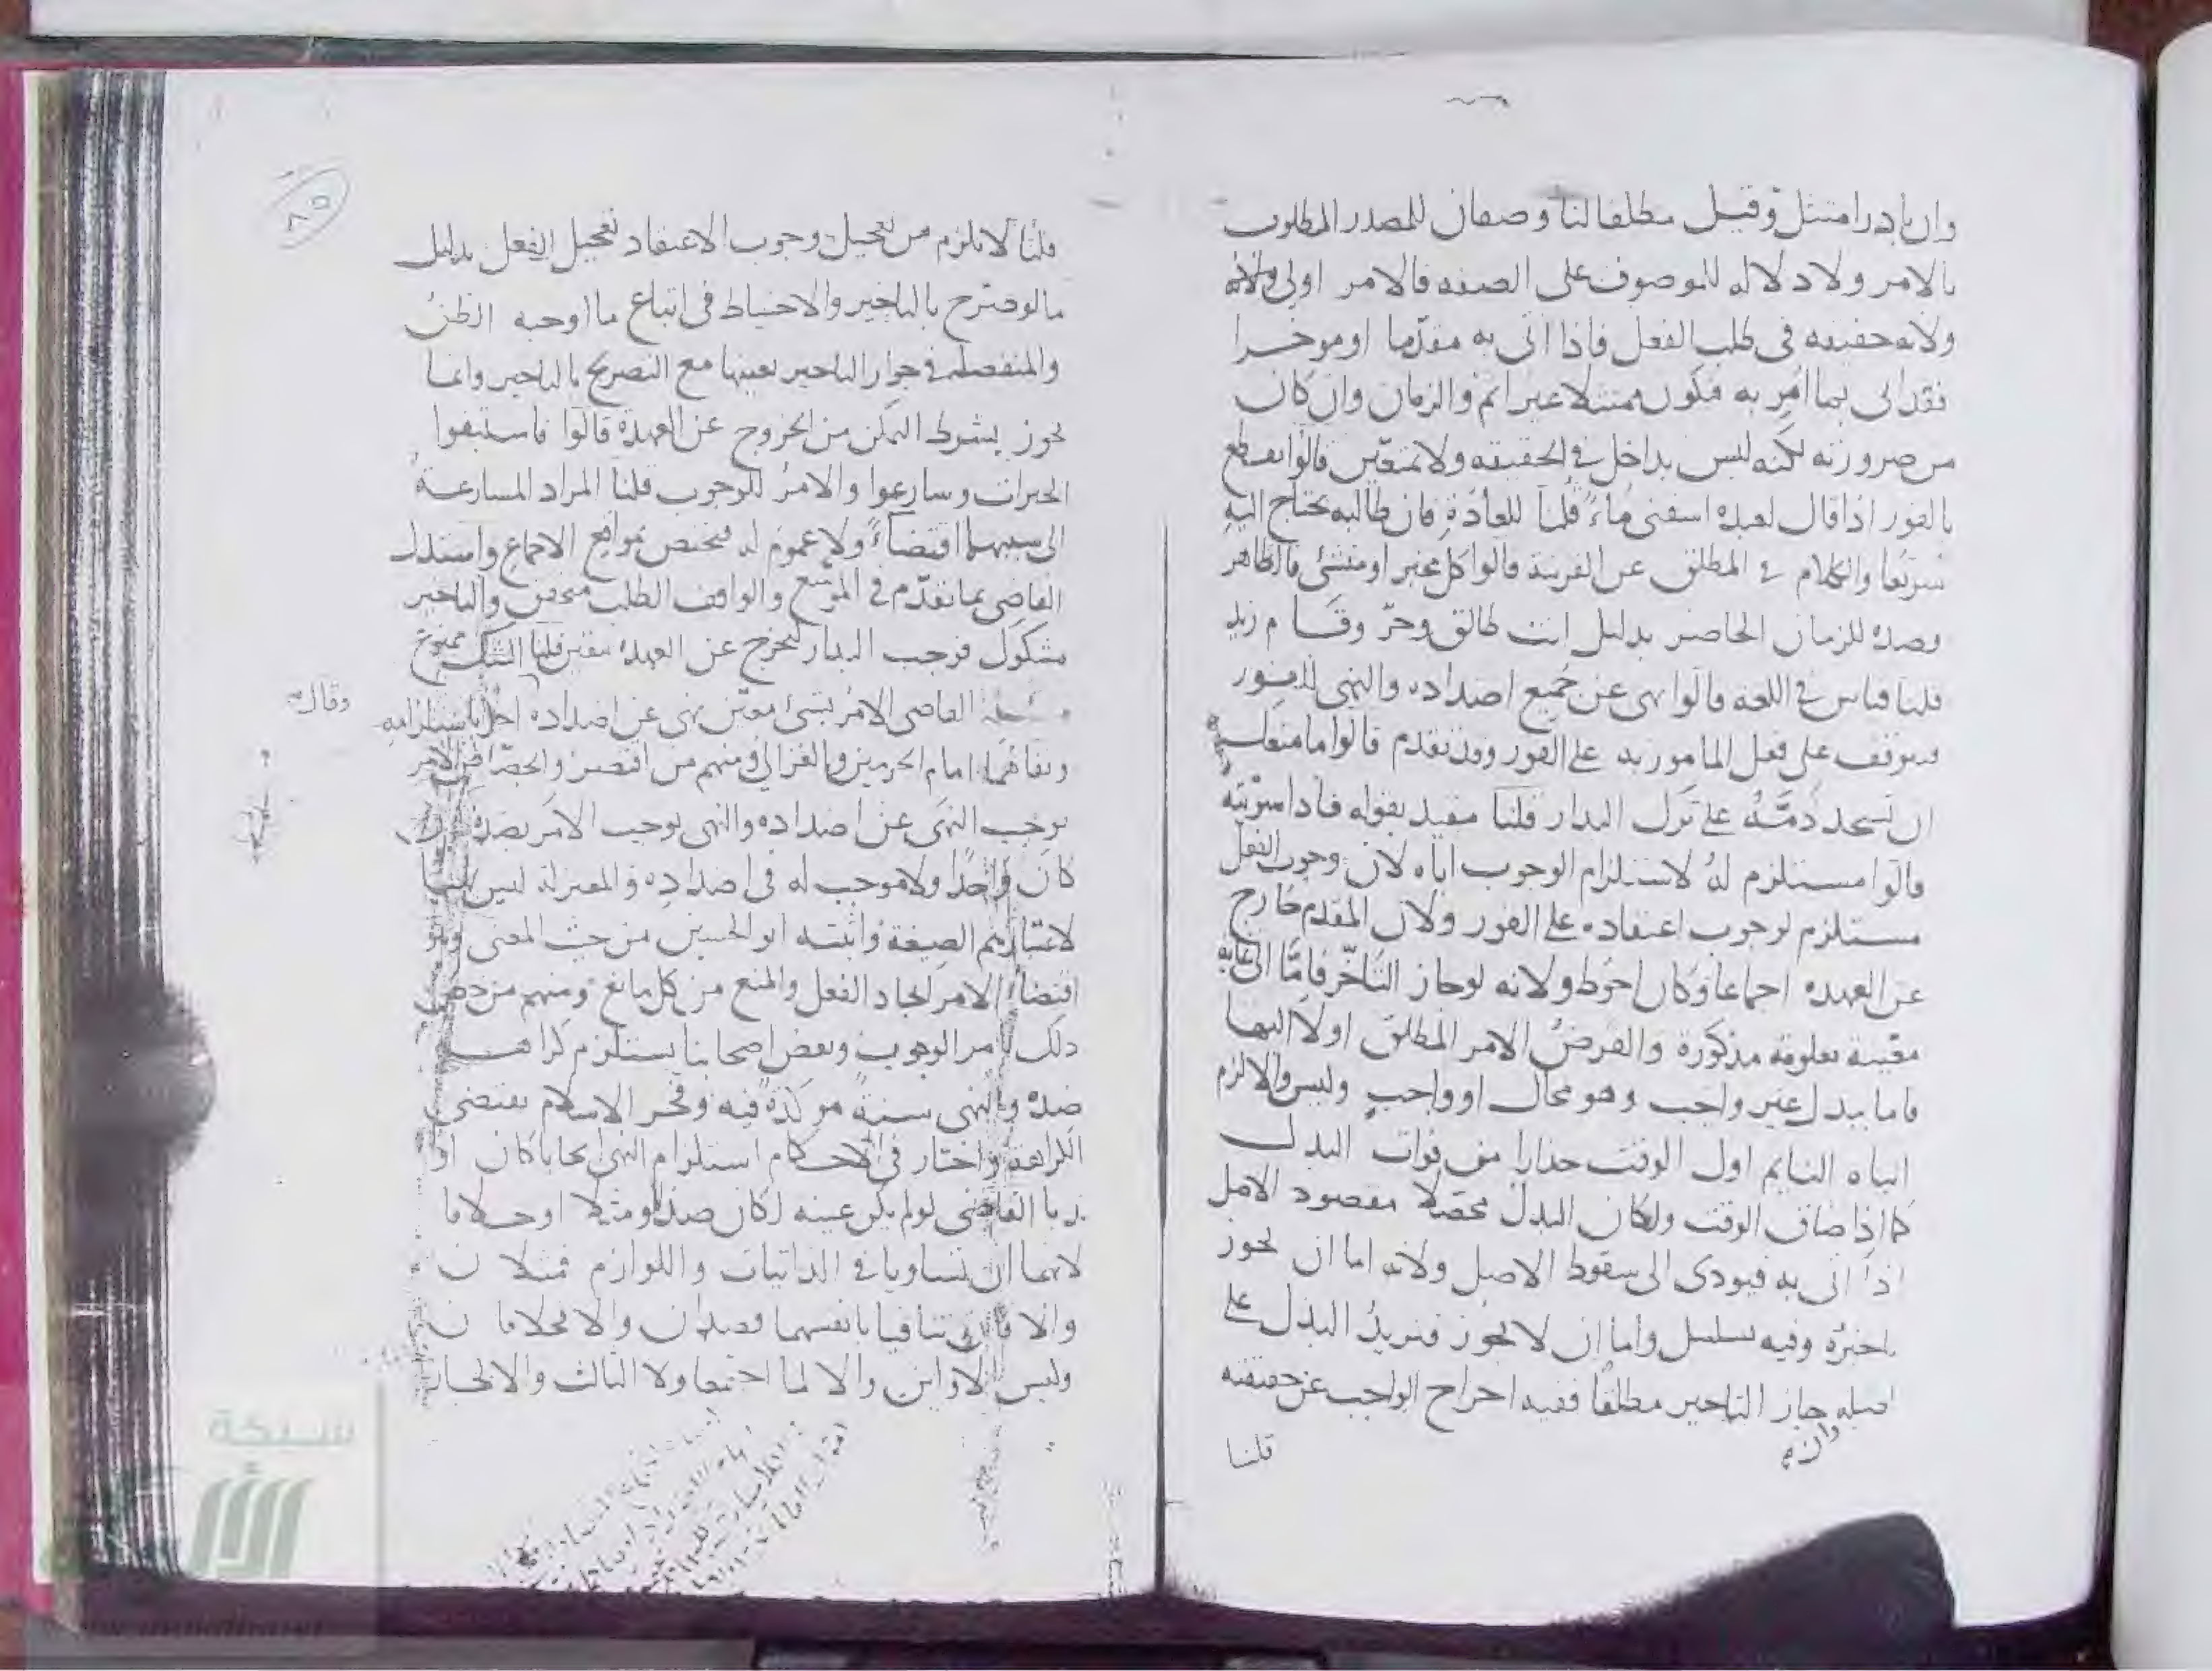 وان بادر امتثل وقيل مطلقا لنا وصفان للمصدر المطلوب
بالامر ولا دلاله للموصوف على الصفه فالامر اولى
ولانه حقيقه فى طلب الفعل فاذا اتى به مقدما او موخرا
فقد اتى بما امر به فيكون ممتثلا غير اثم والزمان وان كان
من ضرورته لكنه ليس بداخل فى الحقيقه ولا متعين قالوا يقطع
بالفور اذا قال لعبده اسقنى ماء قلنا للعادة فان طالبه يحتاج اليه
سريعا والكلام فى المطلق عن القرينة قالوا كل مخبر او منشئ فالظاهر
قصده للزمان الحاضر بدليل انت طالق وحر وقام زيد
قلنا قياس فى اللغه قالوا نهى عن جميع اضداده والنهى للفور
فيتوقف على فعل المامور به على الفور وقد تقدم قالوا ما منعك
ان تسجد ذمه على ترك البدار قلنا مقيد بقوله فاذا سويته
قالوا مستلزم له لاستلزام الوجوب اياه لان وجوب الفعل
مستلزم لوجوب اعتقاده على الفور ولان المقدم خارج
عن العهده اجماعا وكان احوط ولانه لو جاز التاخر فاما الى غايه
معينة معلومة مذكورة والفرض الامر المطلق او لا اليها
فاما ببدل غير واجب وهو محال او واجب وليس والا لزم
انباه النايم اول الوقت حذارا من فوات البدل
كما اذا ضاق الوقت ولكان البدل محصلا مقصود الاصل
اذا اتى به فيودى الى سقوط الاصل ولانه اما ان يجوز
تاخيره وفيه تسلسل واما ان لا يجوز فيزيد البدل على
اصله جاز التاخير مطلقا ففيه اخراج الواجب عن حقيقته
وان
قلنا
٨٥
قلنا لا يلزم من تعجيل وجوب الاعتقاد تعجيل الفعل بدليل
ما لو صرح بالتاخير والاحتياط فى اتباع ما اوجبه الظن
والمنفصله فى جواز التاخير بعينها مع التصريح بالتاخير وانما
يجوز بشرط التمكن من الخروج عن العهدة قالوا فاستبقوا
الخيرات وسارعوا والامر للوجوب قلنا المراد المسارعة
الى سببهما اقتضاء ولا عموم له فيختص بمواقع الاجماع واستدل
القاضى بما تقدم فى الموسع والواقف الطلب متحقق والتاخير
مشكوك فوجب البدار ليخرج عن العهده بيقين قلنا الشك ممنوع
مسئلة القاضى الامر بشئ معين نهى عن اضداده
وقال
ونفاهما امام الحرمين والغزالى ومنهم من اقتصر والجصاص الامر
يوجب النهى عن اضداده والنهى يوجب الامر بضده
كان واحدا ولا موجب له فى اضداده والمعتزلة ليس
لاعتبارهم الصيغة واثبته ابو الحسين من حيث المعنى وهو
اقتضاء الامر ايجاد الفعل والمنع من كل مانع ومنهم من خص
ذلك بامر الوجوب وبعض اصحابنا يستلزم كراهة
ضده والنهى سنة موكدة فيه وفخر الاسلام يقتضى
الكراهة واختار فى الاحكام استلزام النهى ايجابا كان او
ندبا القاضى لو لم يكن عينه لكان ضدا او مثلا او خلافا
لانهما ان تساويا فى الذاتيات واللوازم فمثلان
والا فان تنافيا بانفسهما فضدان والا فخلافان
وليس الاولين والا لما اجتمعا ولا الثالث والا لجاز
شبكة